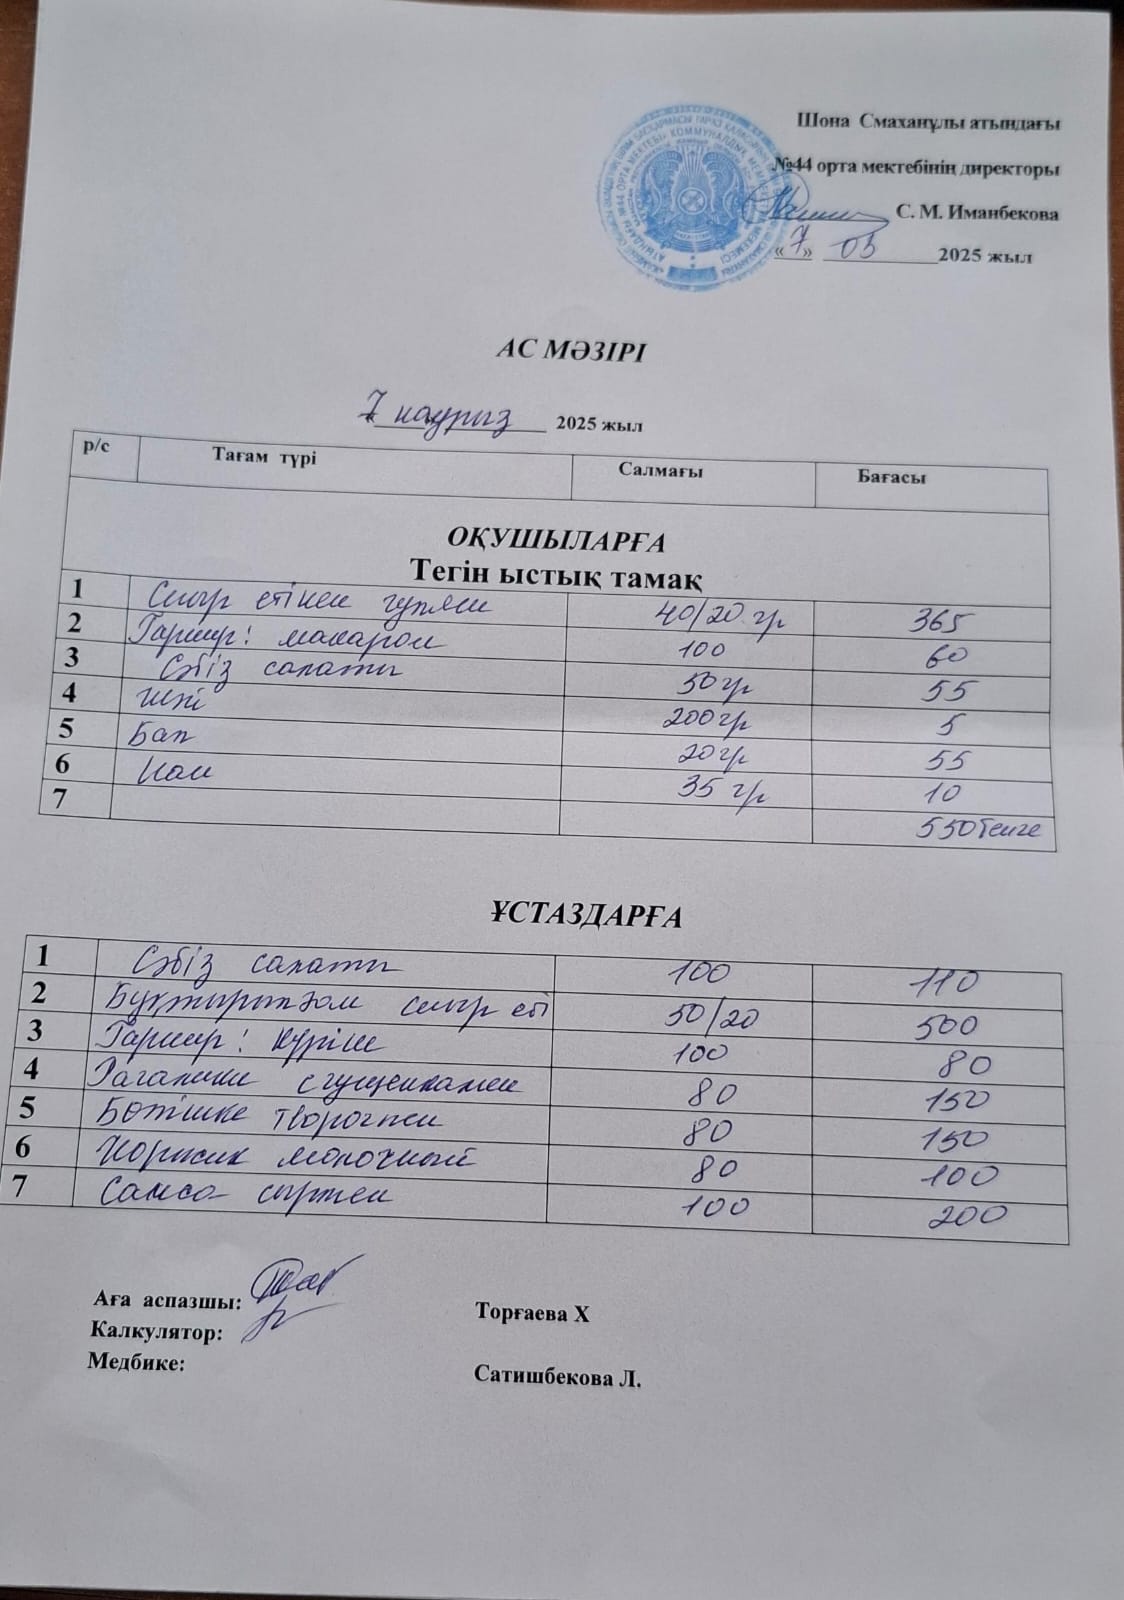 Шона Смаханұлы атындағы
№44 орта мектебінің директоры
С. М. Иманбекова
«7» 03 2025 жыл
АС МӘЗІРІ
«7 наурыз 2025 жыл
р/с Тағам түрі Салмағы Бағасы
ОҚУШЫЛАРҒА
Тегін ыстық тамақ
1 Сиыр етінен гуляш 40/20 гр 365
2 Гарнир: макарон 100 60
3 Сәбіз салаты 50гр 55
4 Шәй 200гр 5
5 Бал 20гр 55
6 Нан 35 гр 10
7 550теңге
ҰСТАЗДАРҒА
1 Сәбіз салаты 100 110
2 Бұқтырылған сиыр еті 50/20 500
3 Гарнир: күріш 100 80
4 Рагалики сгущенкамен 80 150
5 Бөтішке творогпен 80 150
6 Коржик молочный 80 100
7 Самса сырмен 100 200
Аға аспазшы: Торғаева Х
Калкулятор:
Медбике: Сатишбекова Л.